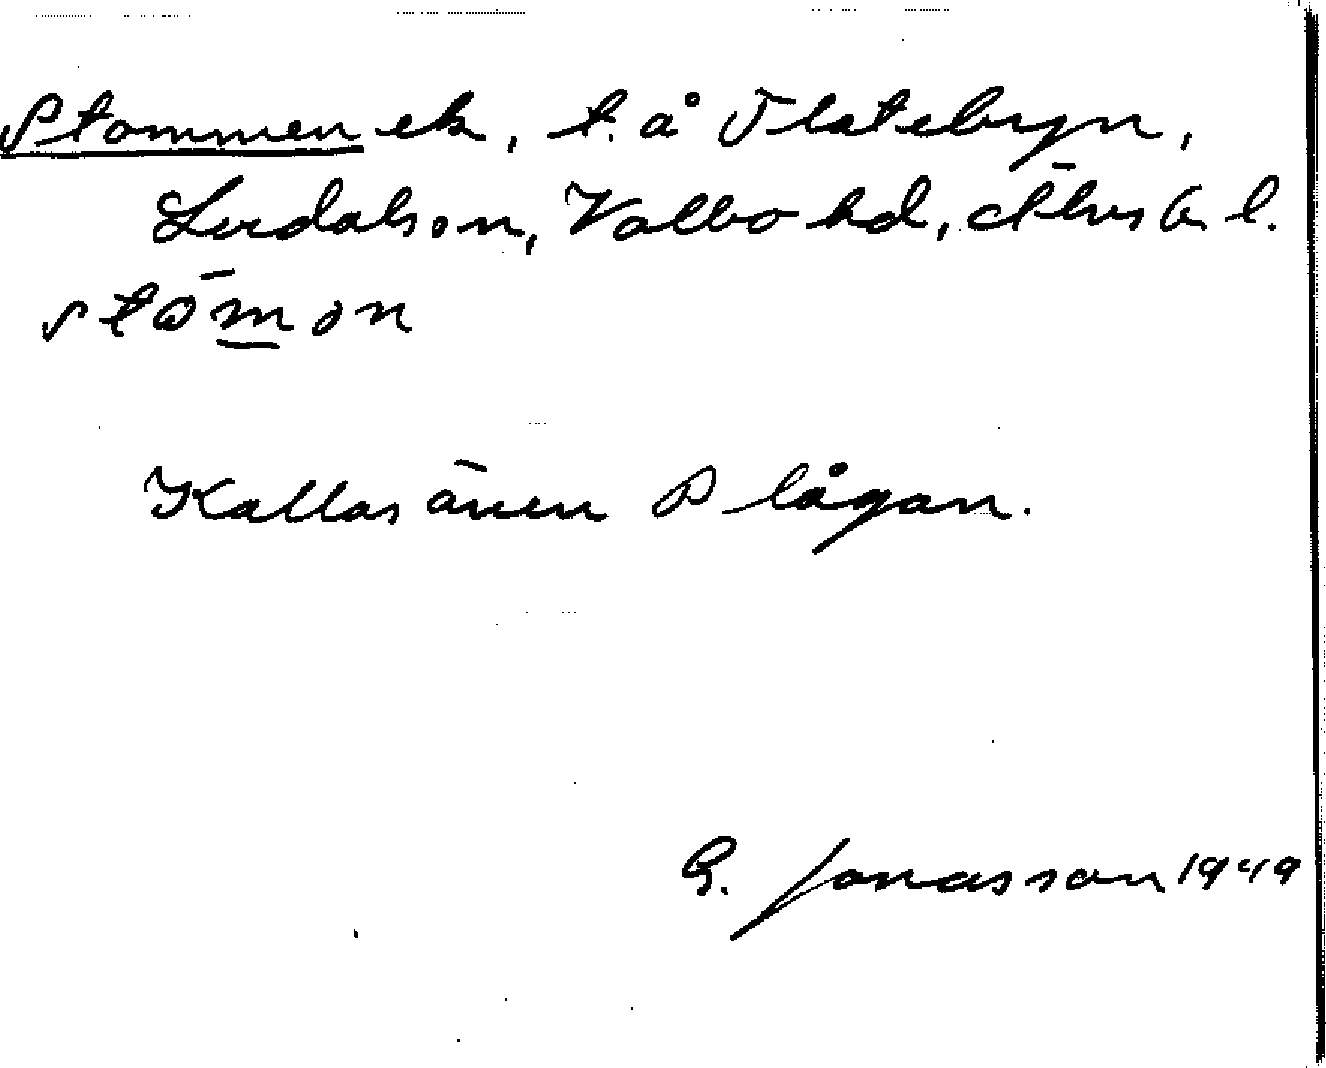 Stommen ek, t. å Flatebyn,
Lerdals sn, Valbo hd, Älvsb. l.
stömon
Kallas även Plågan.
G. Jonasson 1949